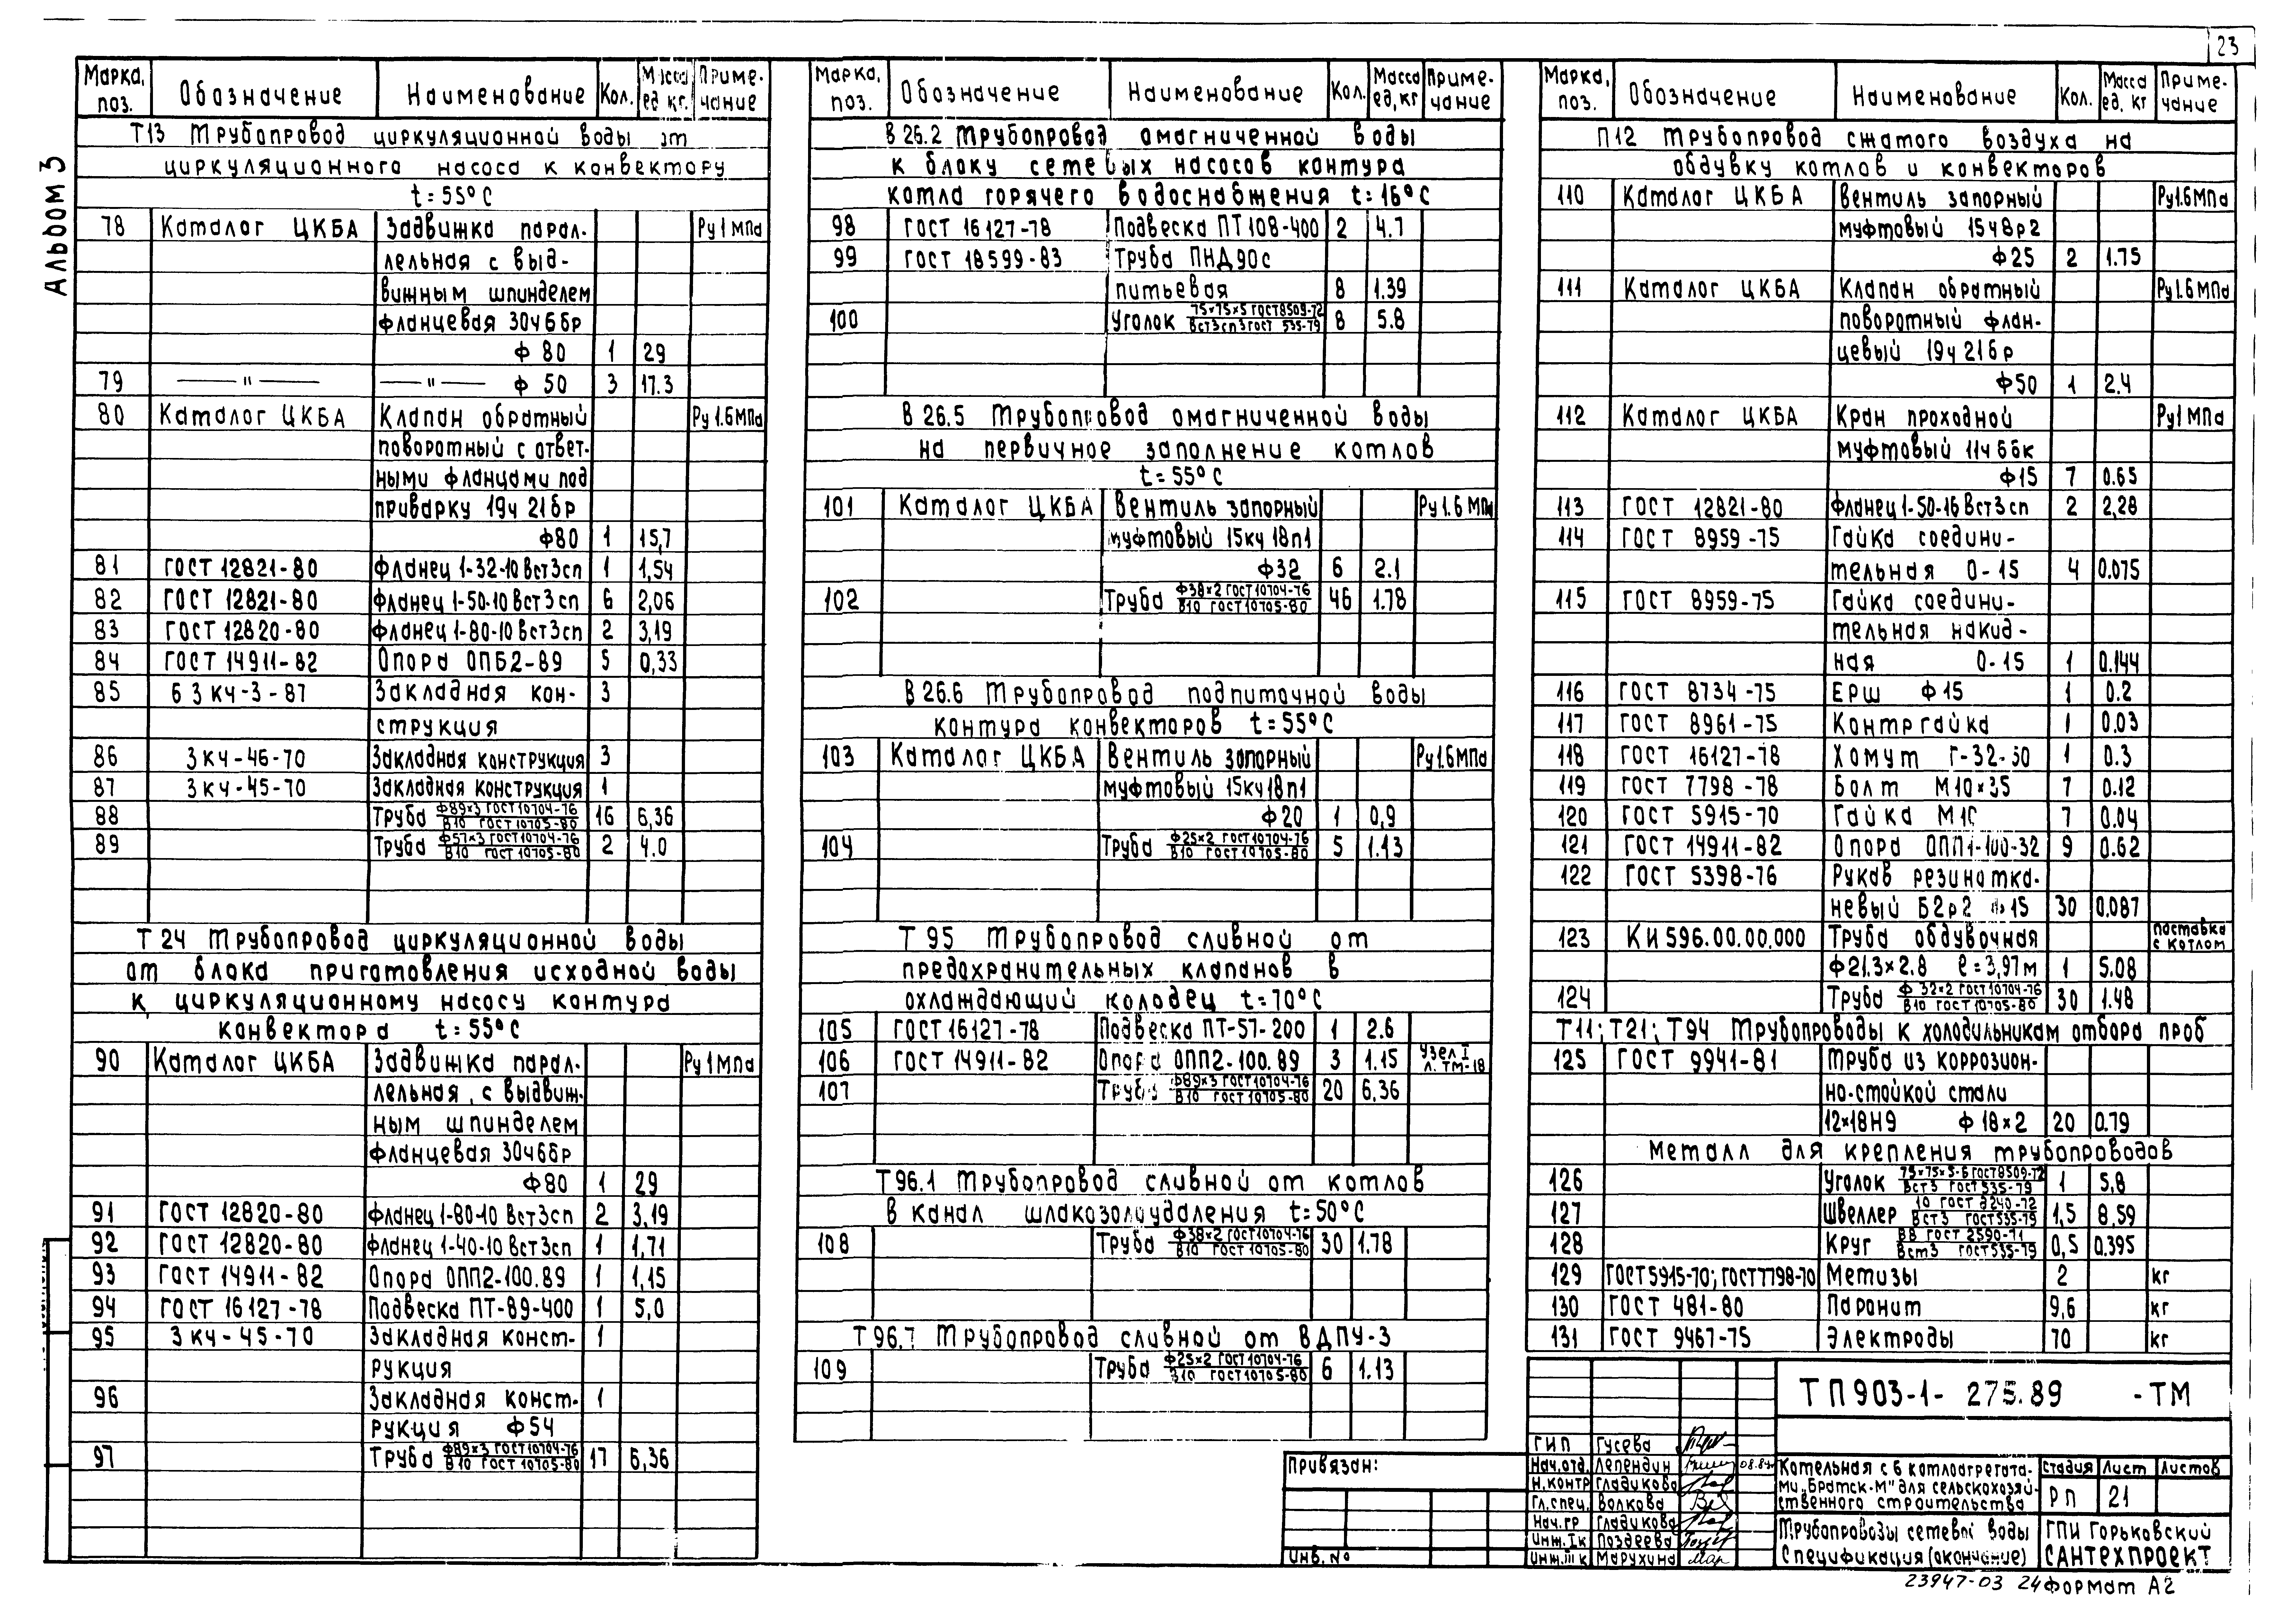 23
Альбом 3
Марка, поз. Обозначение Наименование Кол. Масса ед. кг. Примечание
Т13 Трубопровод циркуляционной воды от
циркуляционного насоса к конвектору
t=55°С
78 Каталог ЦКБА Задвижка парал- Ру1МПа
лельная с выд-
вижным шпинделем
фланцевая 30ч6бр
ф 80 1 29
79 —"— —"— ф 50 3 17.3
80 Каталог ЦКБА Клапан обратный Ру1.6МПа
поворотный с ответ-
ными фланцами под
приварку 19ч21бр
ф80 1 15,7
81 ГОСТ 12821-80 Фланец 1-32-10 Вст3сп 1 1,54
82 ГОСТ 12821-80 Фланец 1-50-10 Вст3сп 6 2,06
83 ГОСТ 12820-80 Фланец 1-80-10 Вст3сп 2 3,19
84 ГОСТ 14911-82 Опора ОПБ2-89 5 0,33
85 63кч-3-87 Закладная кон- 3
струкция
86 3кч-46-70 Закладная конструкция 3
87 3кч-45-70 Закладная конструкция 1
88 Труба ф89×3 ГОСТ10704-76 / В10 ГОСТ10705-80 16 6,36
89 Труба ф57×3 ГОСТ10704-76 / В10 ГОСТ10705-80 2 4.0
Т24 Трубопровод циркуляционной воды
от блока приготовления исходной воды
к циркуляционному насосу контура
конвектора t=55°С
90 Каталог ЦКБА Задвижка парал- Ру1МПа
лельная, с выдвиж-
ным шпинделем
фланцевая 30ч6бр
ф80 1 29
91 ГОСТ 12820-80 Фланец 1-80-10 Вст3сп 2 3,19
92 ГОСТ 12820-80 Фланец 1-40-10 Вст3сп 1 1,71
93 ГОСТ 14911-82 Опора ОПП2-100.89 1 1,15
94 ГОСТ 16127-78 Подвеска ПТ-89-400 1 5,0
95 3кч-45-70 Закладная конст- 1
рукция
96 Закладная конст- 1
рукция ф54
97 Труба ф89×3 ГОСТ10704-76 / В10 ГОСТ10705-80 17 6,36
Марка, поз. Обозначение Наименование Кол. Масса ед, кг Примечание
В26.2 Трубопровод омагниченной воды
к блоку сетевых насосов контура
котла горячего водоснабжения t=16°С
98 ГОСТ 16127-78 Подвеска ПТ108-400 2 4.7
99 ГОСТ 18599-83 Труба ПНД90с
питьевая 8 1.39
100 Уголок 75×75×5 ГОСТ8509-72 / Вст3сп3 ГОСТ 535-79 8 5.8
В26.5 Трубопровод омагниченной воды
на первичное заполнение котлов
t=55°С
101 Каталог ЦКБА Вентиль запорный Ру1.6МПа
муфтовый 15кч18п1
ф32 6 2.1
102 Труба ф38×2 ГОСТ10704-76 / В10 ГОСТ10705-80 46 1.78
В26.6 Трубопровод подпиточной воды
контура конвекторов t=55°С
103 Каталог ЦКБА Вентиль запорный Ру1.6МПа
муфтовый 15кч18п1
ф20 1 0,9
104 Труба ф25×2 ГОСТ10704-76 / В10 ГОСТ10705-80 5 1.13
Т95 Трубопровод сливной от
предохранительных клапанов в
охлаждающий колодец t=70°С
105 ГОСТ 16127-78 Подвеска ПТ-57-200 1 2.6
106 ГОСТ 14911-82 Опора ОПП2-100.89 3 1.15 Узел I л. ТМ-18
107 Труба ф89×3 ГОСТ10704-76 / В10 ГОСТ10705-80 20 6,36
Т96.1 Трубопровод сливной от котлов
в канал шлакозолоудаления t=50°С
108 Труба ф38×2 ГОСТ10704-76 / В10 ГОСТ10705-80 30 1.78
Т96.7 Трубопровод сливной от ВДПУ-3
109 Труба ф25×2 ГОСТ10704-76 / В10 ГОСТ10705-80 6 1.13
Марка, поз. Обозначение Наименование Кол. Масса ед. кг Примечание
П12 Трубопровод сжатого воздуха на
обдувку котлов и конвекторов
110 Каталог ЦКБА Вентиль запорный Ру1.6МПа
муфтовый 15ч8р2
ф25 2 1.75
111 Каталог ЦКБА Клапан обратный Ру1.6МПа
поворотный флан-
цевый 19ч21бр
ф50 1 2.4
112 Каталог ЦКБА Кран проходной Ру1МПа
муфтовый 11ч6бк
ф15 7 0.65
113 ГОСТ 12821-80 Фланец 1-50-16 Вст3сп 2 2,28
114 ГОСТ 8959-75 Гайка соедини-
тельная 0-15 4 0.075
115 ГОСТ 8959-75 Гайка соедини-
тельная накид-
ная 0-15 1 0.144
116 ГОСТ 8734-75 Ерш ф15 1 0.2
117 ГОСТ 8961-75 Контргайка 1 0.03
118 ГОСТ 16127-78 Хомут Г-32-50 1 0.3
119 ГОСТ 7798-78 Болт М10×35 7 0.12
120 ГОСТ 5915-70 Гайка М10 7 0.04
121 ГОСТ 14911-82 Опора ОПП1-100-32 9 0.62
122 ГОСТ 5398-76 Рукав резинотка-
невый Б2р2 ф15 30 0.087
123 КИ596.00.00.000 Труба обдувочная поставка с котлом
ф21.3×2.8 ℓ=3,97м 1 5.08
124 Труба ф 32×2 ГОСТ10704-76 / В10 ГОСТ10705-80 30 1.48
Т11; Т21; Т94 Трубопроводы к холодильникам отбора проб
125 ГОСТ 9941-81 Труба из коррозион-
но-стойкой стали
12×18Н9 ф 18×2 20 0.79
Металл для крепления трубопроводов
126 Уголок 75×75×5-6 ГОСТ8509-72 / Вст3 ГОСТ535-79 1 5,8
127 Швеллер 10 ГОСТ 8240-72 / Вст3 ГОСТ535-79 1,5 8,59
128 Круг В8 ГОСТ 2590-71 / Вст3 ГОСТ535-79 0,5 0,395
129 ГОСТ5915-70; ГОСТ7798-70 Метизы 2 кг
130 ГОСТ 481-80 Паронит 9,6 кг
131 ГОСТ 9467-75 Электроды 70 кг
ТП903-1-275.89 -ТМ
Привязан:
Инв. №
ГИП Гусева
Нач.отд. Лепендин
Н.контр Гладикова
Гл.спец. Волкова
Нач.гр Гладикова
Инж.Iк Поздеева
Инж.IIIк Марухина
Котельная с 6 котлоагрегата-
ми „Братск-М" для сельскохозяй-
ственного строительства
Стадия Лист Листов
РП 21
Трубопроводы сетевой воды
Спецификация (окончание)
ГПИ Горьковский
САНТЕХПРОЕКТ
23947-03 24 Формат А2